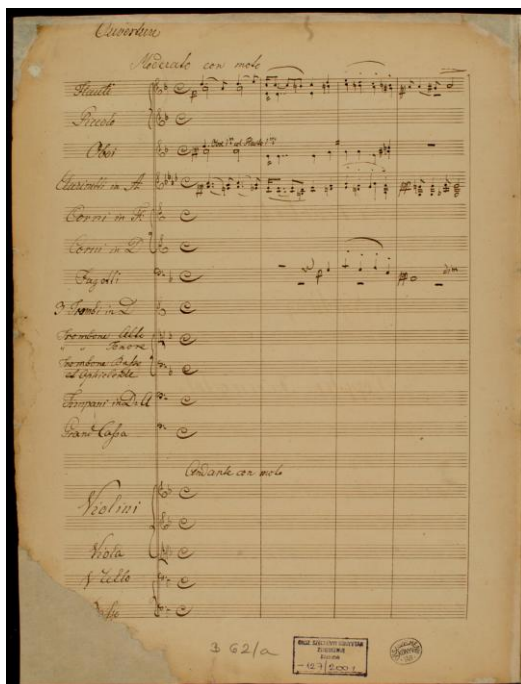 Ouverture
Moderato con moto
Flauti
Piccolo
Oboi
Oboe 1mo col Flauto 1mo
Clarinetti in A
Corni in F
Corni in D
Fagotti
pp
dim
3 Trombi in D
Trombone Alto
" " Tenore
Trombone Basso
ed Ophicleide
Timpani in D. A
Grand Cassa
Andante con moto
Violini
Viola
V Cello
Basso
3 62/a
127/2001